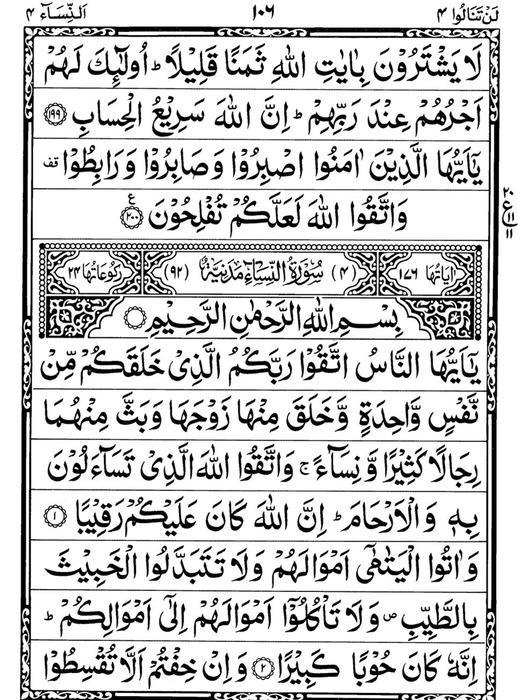 لَنْ تَنَالُوا ۴ ۱۰۶ اَلنِّسَآء ۴
لَا يَشْتَرُوْنَ بِاٰيٰتِ اللّٰهِ ثَمَنًا قَلِيْلًا ؕ اُولٰٓئِكَ لَهُمْ
اَجْرُهُمْ عِنْدَ رَبِّهِمْ ؕ اِنَّ اللّٰهَ سَرِيْعُ الْحِسَابِ ۱۹۹
يٰۤاَيُّهَا الَّذِيْنَ اٰمَنُوا اصْبِرُوْا وَصَابِرُوْا وَرَابِطُوْا قف
وَاتَّقُوا اللّٰهَ لَعَلَّكُمْ تُفْلِحُوْنَ ۲۰۰ ع
۲۰
ع ۱۱
۱۱
اٰيَاتُهَا ۱۷۶ (۴) سُوْرَةُ النِّسَآءِ مَدَنِيَّةٌ (۹۲) رُكُوْعَاتُهَا ۲۴
بِسْمِ اللّٰهِ الرَّحْمٰنِ الرَّحِيْمِ
يٰۤاَيُّهَا النَّاسُ اتَّقُوْا رَبَّكُمُ الَّذِيْ خَلَقَكُمْ مِّنْ
نَّفْسٍ وَّاحِدَةٍ وَّخَلَقَ مِنْهَا زَوْجَهَا وَبَثَّ مِنْهُمَا
رِجَالًا كَثِيْرًا وَّنِسَآءً ۚ وَاتَّقُوا اللّٰهَ الَّذِيْ تَسَآءَلُوْنَ
بِهٖ وَالْاَرْحَامَ ؕ اِنَّ اللّٰهَ كَانَ عَلَيْكُمْ رَقِيْبًا ۱
وَاٰتُوا الْيَتٰمٰۤى اَمْوَالَهُمْ وَلَا تَتَبَدَّلُوا الْخَبِيْثَ
بِالطَّيِّبِ ۪ وَلَا تَاْكُلُوْۤا اَمْوَالَهُمْ اِلٰۤى اَمْوَالِكُمْ ؕ
اِنَّهٗ كَانَ حُوْبًا كَبِيْرًا ۲ وَاِنْ خِفْتُمْ اَلَّا تُقْسِطُوْا